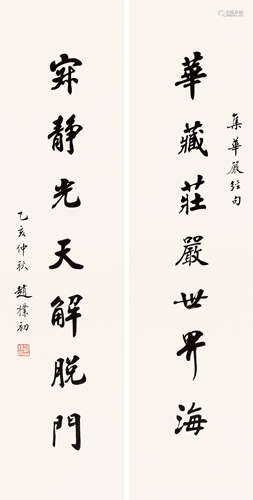 集華嚴經句
華藏莊嚴世界海
寂靜光天解脫門
乙亥仲秋 趙樸初